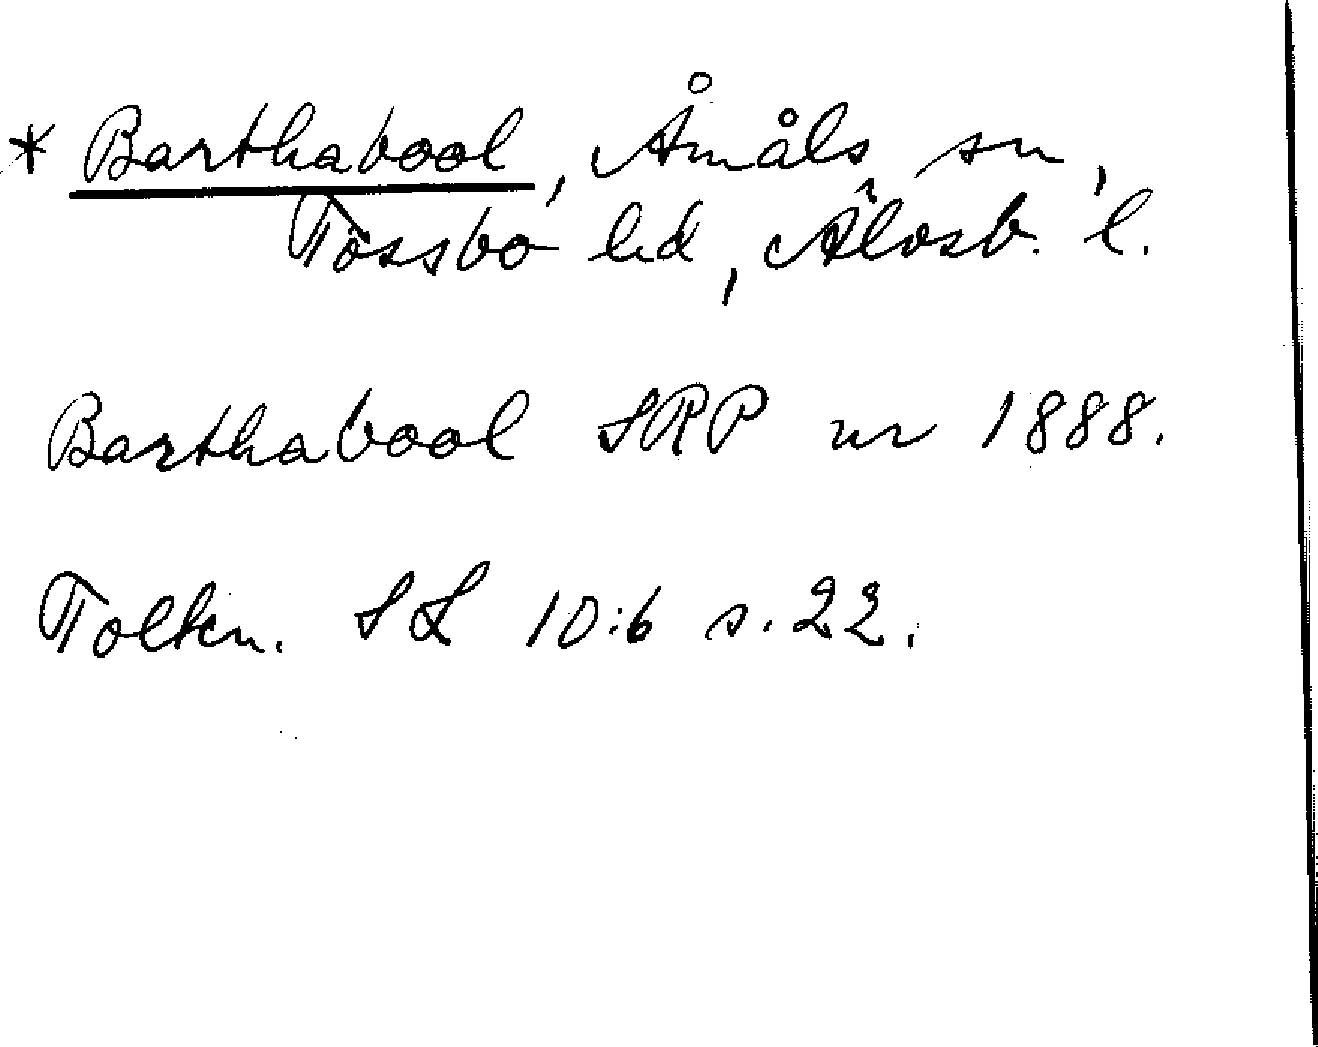 * Barthabool, Åmåls sn,
Tössbo hd, Älvsb. l.
Barthabool SRP nr 1888.
Tolkn. SL 10:6 s. 22.